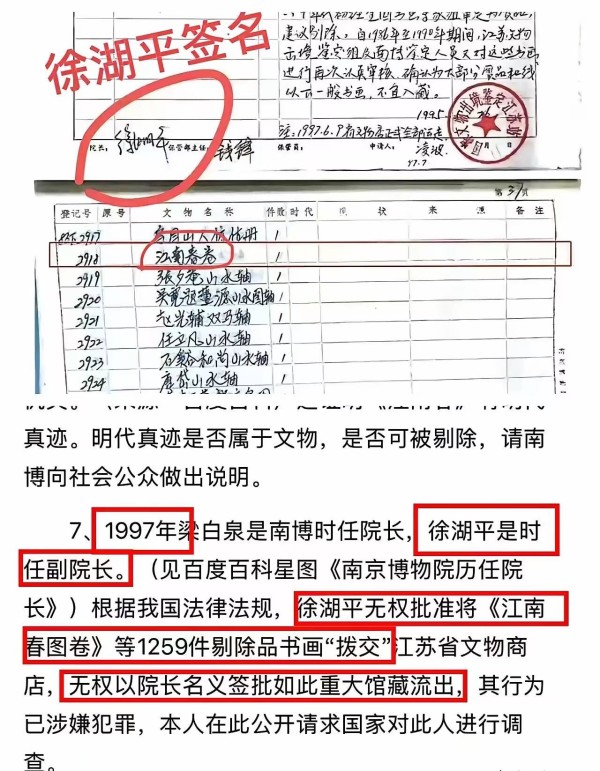 徐湖平签名
建议剔除。自1986年至1990年期间,江苏文物
出境鉴定组及南博鉴定人员又对这些书画
进行再次认真审核,确认为
以下一般书画,不宜入藏。
1995
院长:
保管部主任:钱锋
保管员:
注:1997.6.9
申请人:凌波
97.7
月 日
第31页
登记号 原号 文物名称 件数 时代 现状 来源 备注
2917
2918 江南春卷 1
2919 张夕庵山水轴 1
2920 山水图轴 1
2921 赵光辅双马轴 1
2922 任立凡山水轴 1
2923 石谿和尚山水轴 1
2924 唐岱山水轴 1
真迹。明代真迹是否属于文物,是否可被剔除,请南
博向社会公众做出说明。
7、1997年梁白泉是南博时任院长,徐湖平是时
任副院长。(见百度百科星图《南京博物院历任院
长》)根据我国法律法规,徐湖平无权批准将《江南
春图卷》等1259件剔除品书画“拨交”江苏省文物商
店,无权以院长名义签批如此重大馆藏流出,其行为
已涉嫌犯罪,本人在此公开请求国家对此人进行调
查。